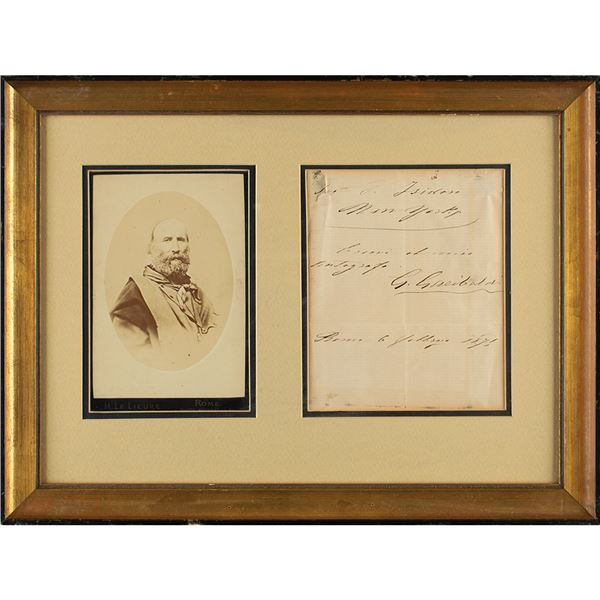 H. LE LIEURE ROME
Isidor
New York
Eccovi il mio
autografo
G. Garibaldi
Roma 6 1875